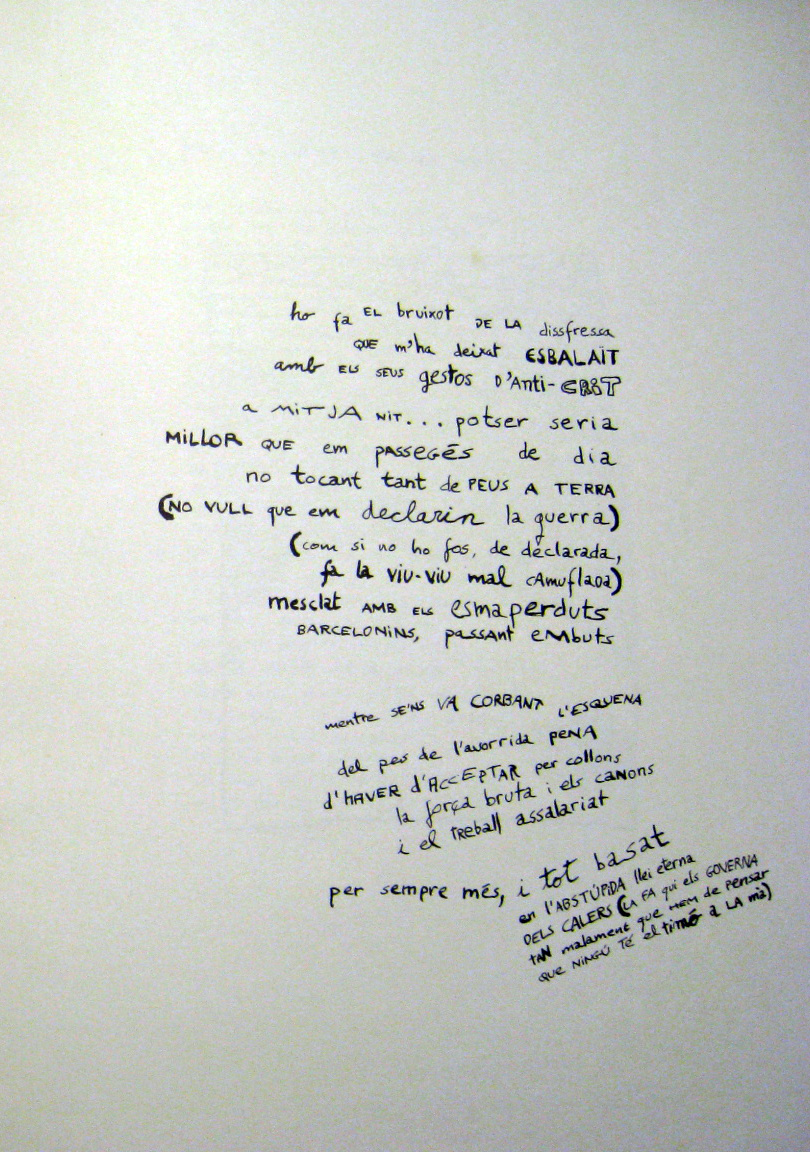 ho fa EL bruixot DE LA dissfressa
QUE m'ha deixat ESBALAÏT
amb ELS SEUS gestos D'Anti-CRIT
a MiTJA NiT... potser seria
MiLLOR QUE em PASSEGÉS de dia
no tocant tant de PEUS A TERRA
(NO VULL que em declarin la guerra)
(com si no ho fos, de declarada,
fa la viu-viu mal cAmuflada)
mesclat AMB ELS esmaperduts
BARCELONiNS, passant eMbuts
mentre SE'NS VA CORBANT L'ESQUENA
del pes de l'avorrida peNA
d'HAVER d'ACCEPTAR per collons
la força bruta i els cANons
i el TREBALL assalariat
per sempre més, i tot basat
en l'ABSTÚPiDA llei eterna
DELS CALERS (LA FA qui els GOVERNA
tAN malament que HEM de pensar
QUE NiNGÚ TÉ el timó a LA mà)